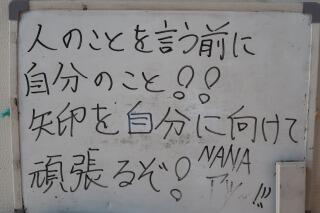 人のことを言う前に
自分のこと!!
矢印を自分に向けて
頑張るぞ!
NANA